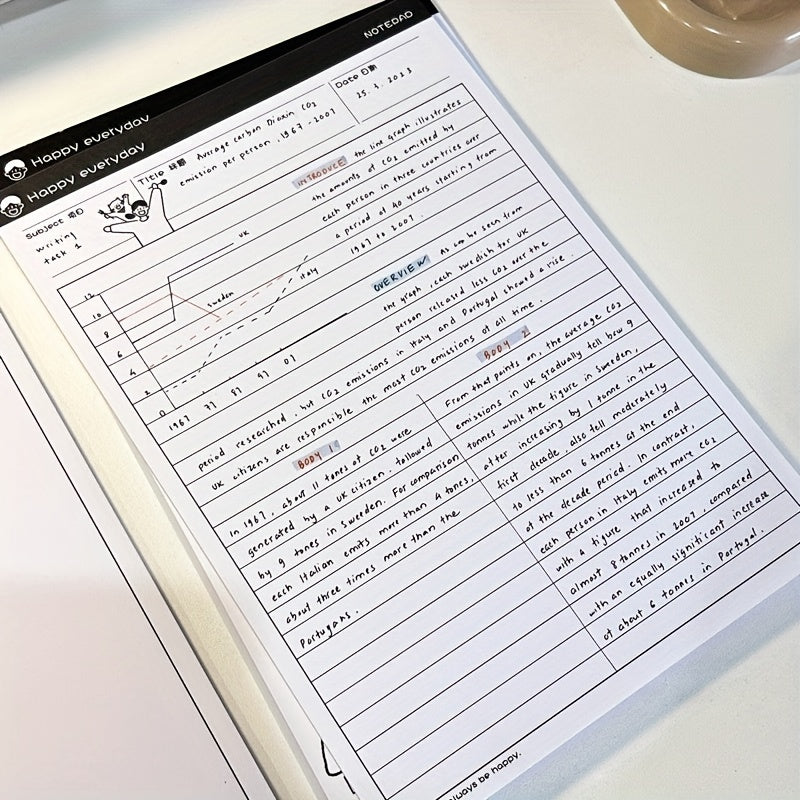 NOTEPAD
Happy everyday
Happy everyday
Subject 项目
writing
task 1
Title 标题 Average carbon Dioxin CO2
emission per person, 1967 - 2007
Date 日期
25. 4. 2023
INTRODUCE the line graph illustrates
the amounts of CO2 emitted by
each person in three countries over
a period of 40 years starting from
1967 to 2007.
UK
Sweden
italy
12
10
8
6
4
2
0
1967 77 87 97 07
OVERVIEW As can be seen from
the graph, each swedish for UK
person released less CO2 over the
period researched, but CO2 emissions in Italy and Portugal showed a rise.
UK citizens are responsible the most CO2 emissions of all time.
BODY 1
In 1967, about 11 tones of CO2 were
generated by a UK citizen, followed
by 9 tones in Sweden. For comparison
each Italian emits more than 4 tones,
about three times more than the
Portugans.
BODY 2
From that points on, the average CO2
emissions in UK gradually fell bow 9
tonnes while the figure in Sweden,
after increasing by 1 tonne in the
first decade, also fell moderately
to less than 6 tonnes at the end
of the decade period. In contrast,
each person in Italy emits more CO2
with a figure that increased to
almost 8 tonnes in 2007, compared
with an equally significant increase
of about 6 tonnes in Portugal.
always be happy.